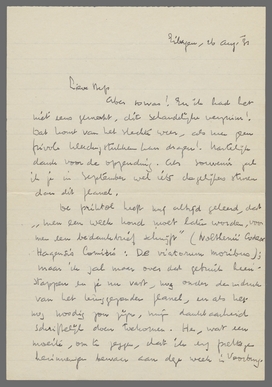 26 Aug. '31
Lieve
Aber sowas! En ik had het
niet eens gemerkt, dit schandelijke verzuim!
Dat komt van het slechte weer, als me geen
frivole kleedingstukken kan dragen! Hartelijk
dank voor de opzending. Als souvenir zal
ik je in September wel iets degelijkers sturen
dan dit flanel.
heeft mij altijd geleerd dat
"men een week moet laten worden, voor
men een bedankbrief schrijft"
Hagentis : De viatorum moribus);
maar ik zal maar over dat gebruik heen
stappen en je nu vast, nog onder de indruk
van het flanel, en als het
nog noodig zou zijn, mijn dankbaarheid
schriftelijk doen toekomen. Hè, wat een
moeite, om te zeggen, dat ik nog prettige
herinneringen bewaar aan die week in Voorburg